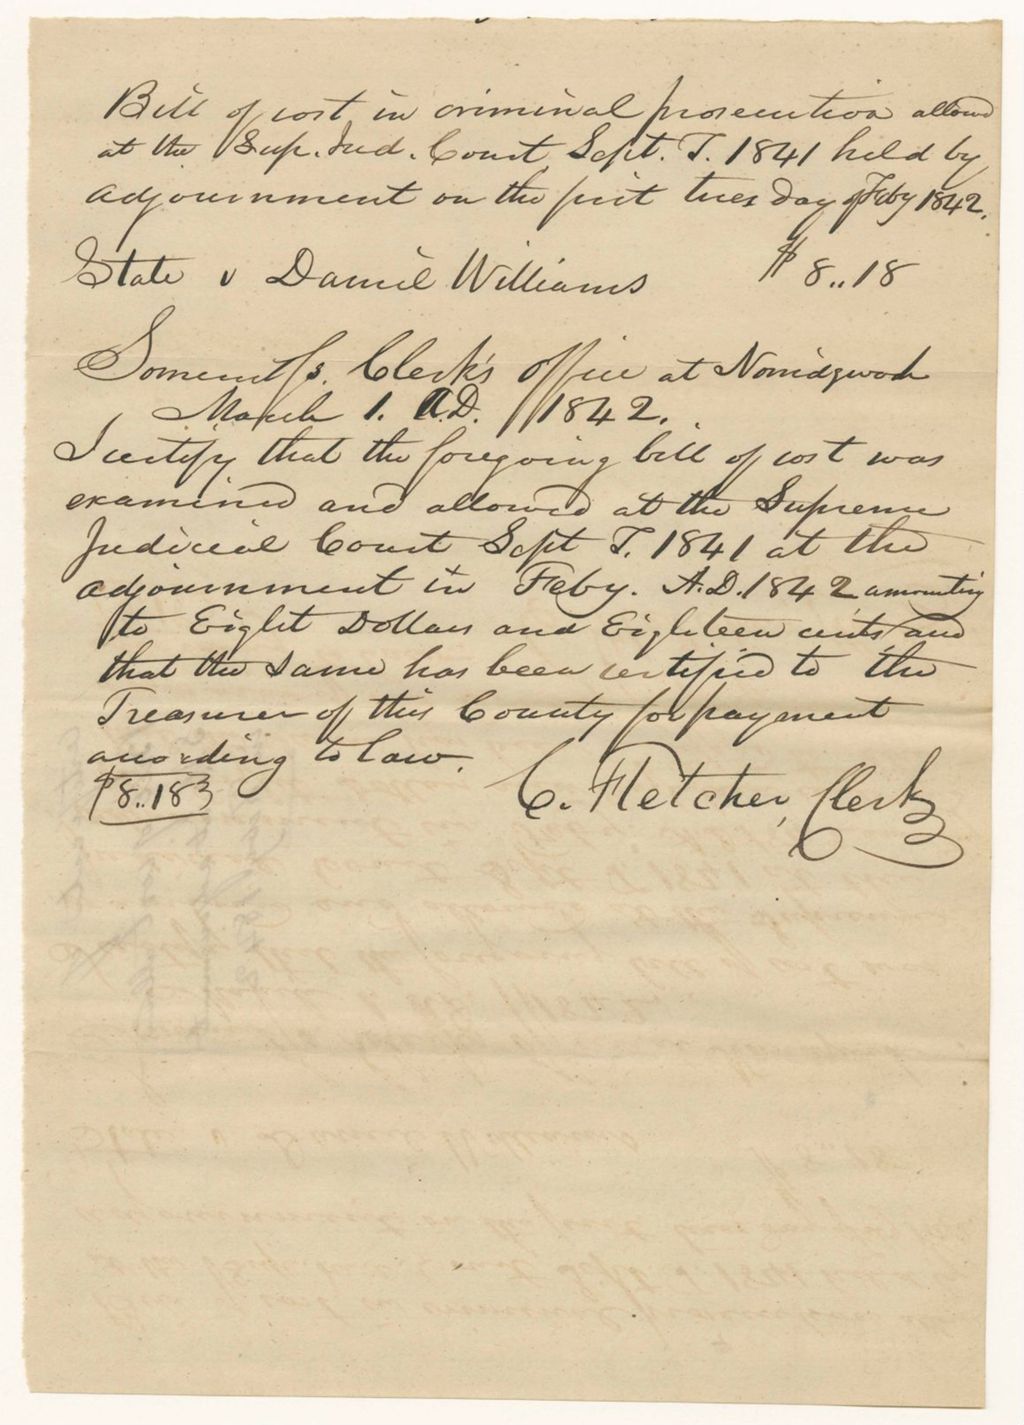 Bill of cost in criminal prosecution allowed
at the Sup. Jud. Court Sept. T. 1841 held by
adjournment on the first tuesday of Feby 1842.
State v Daniel Williams $8..18
Somerset ss. Clerk's office at Norridgewock
March 1. A.D. 1842.
I certify that the foregoing bill of cost was
examined and allowed at the Supreme
Judicial Court Sept T. 1841 at the
adjournment in Feby. A.D. 1842 amounting
to Eight Dollars and Eighteen cents and
that the same has been certified to the
Treasurer of this County for payment
according to law.
$8..18
C. Fletcher, Clerk